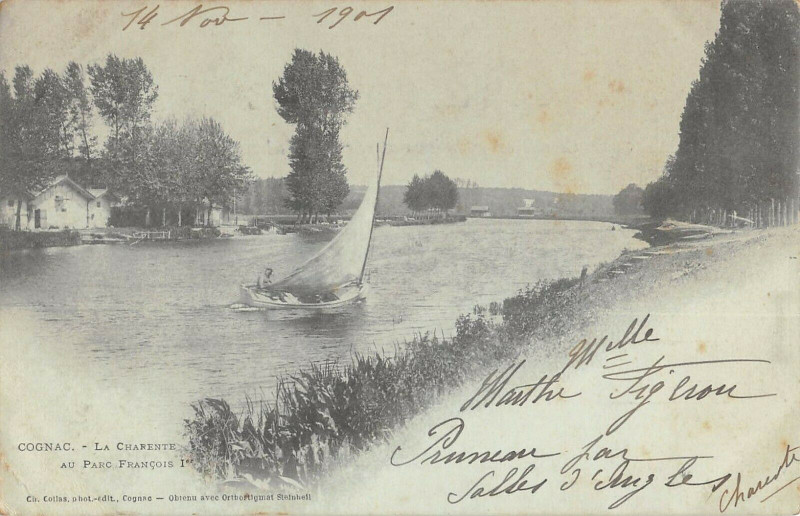 14 Nov - 1901
Mlle
Marthe Figerou
Pruneau par
Salles d'Angles
Charente
COGNAC. - LA CHARENTE
AU PARC FRANÇOIS Ier
Ch. Collas, phot.-édit., Cognac — Obtenu avec Orthostigmat Steinheil